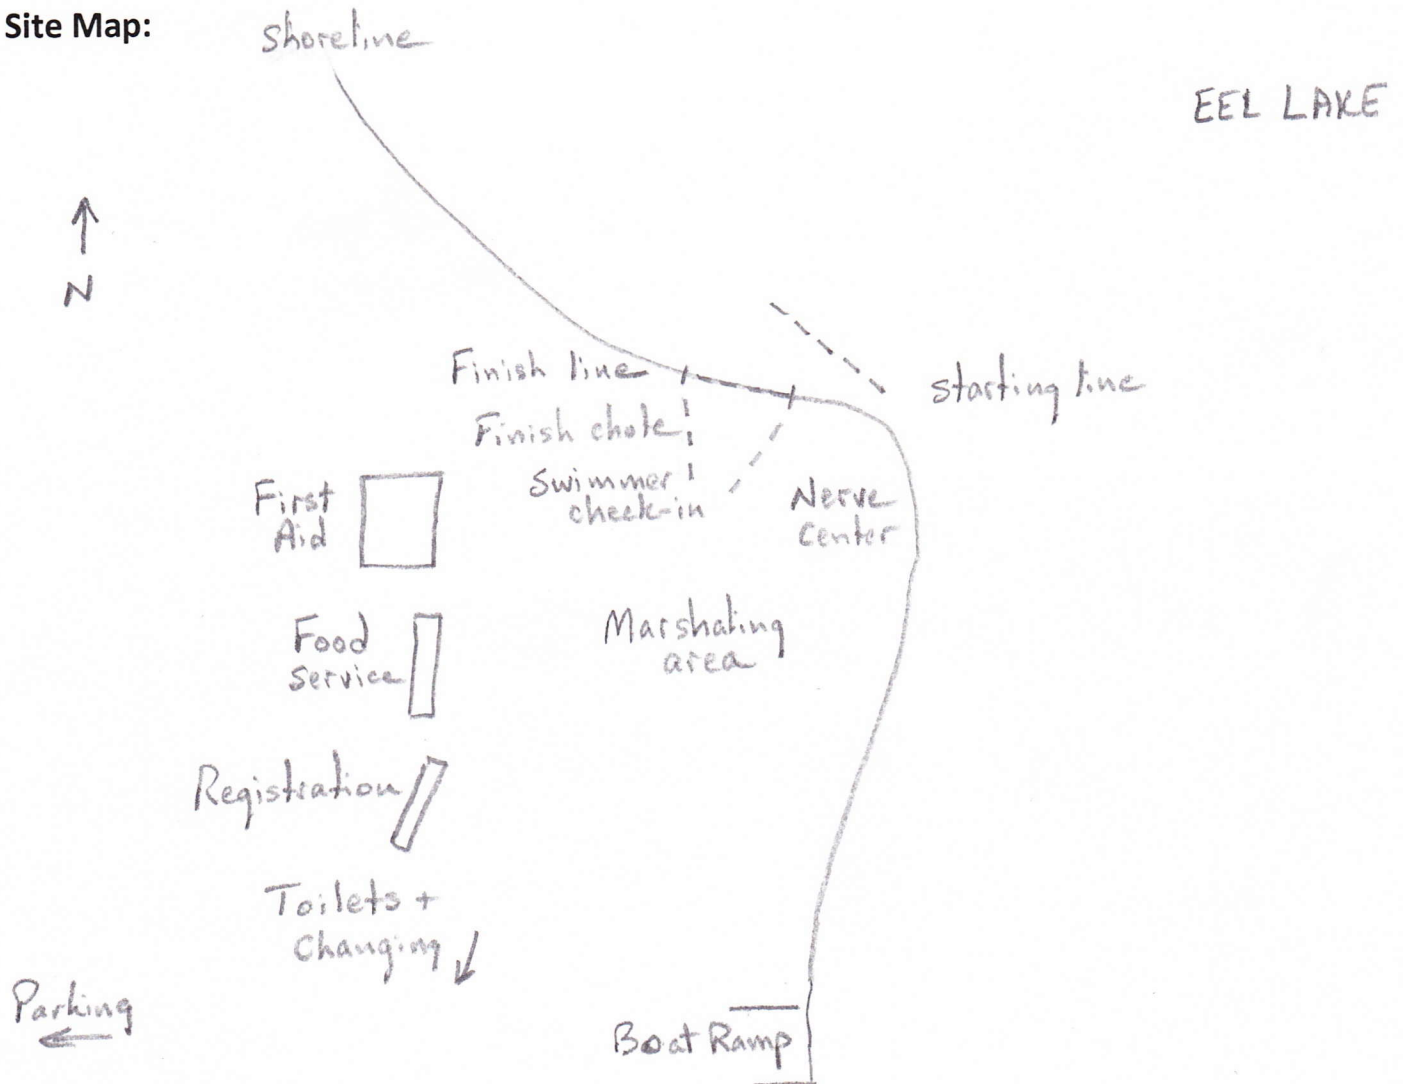 Site Map:
shoreline
EEL LAKE
N
Finish line
starting line
Finish chute
Swimmer
check-in
First
Aid
Nerve
Center
Food
Service
Marshaling
area
Registration
Toilets +
Changing
Parking
Boat Ramp